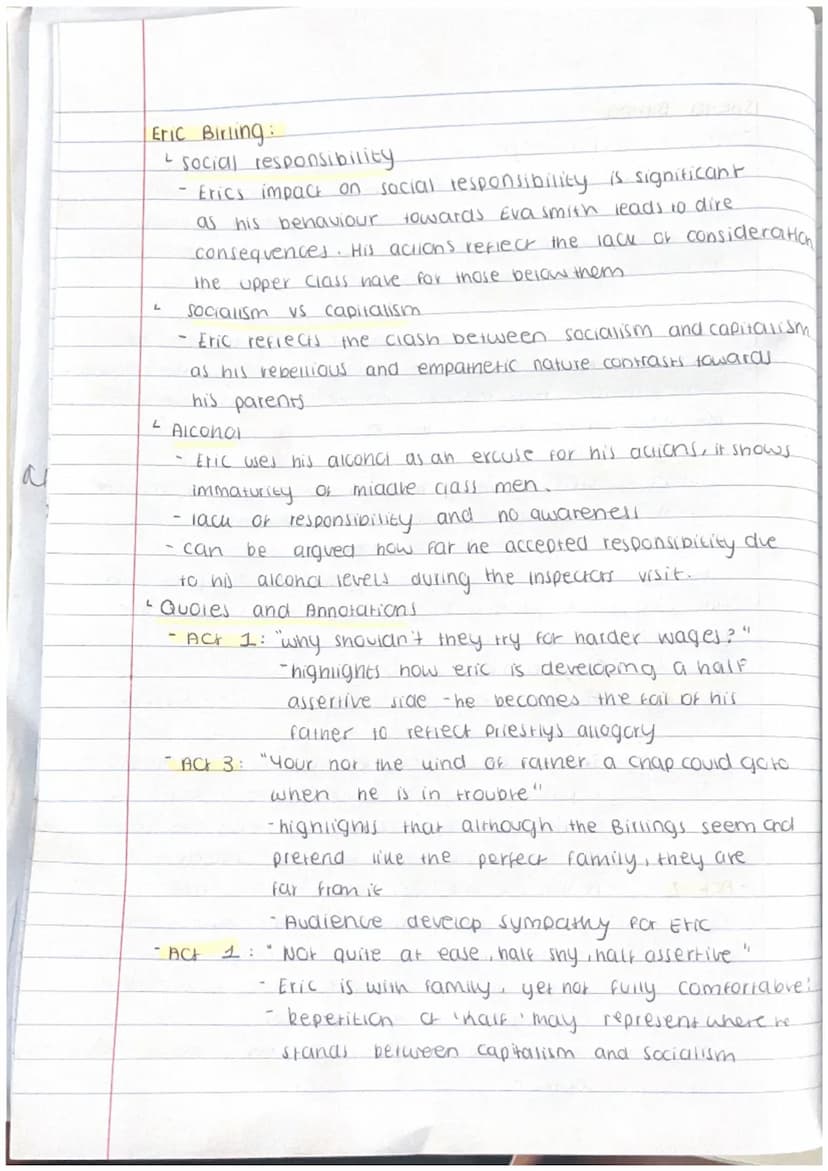 Eric Birling:
└ social responsibility
- Erics impact on social responsibility is significant
as his behaviour towards Eva smith leads to dire
consequences. His actions reflect the lack of consideration
the upper class have for those below them
└ socialism vs capitalism
- Eric reflects the clash between socialism and capitalism
as his rebellious and empathetic nature contrasts towards
his parents
└ Alcohol
- Eric uses his alcohol as an excuse for his actions, it shows
immaturity of middle class men.
- lack of responsibility and no awareness
- can be argued how far he accepted responsibility due
to his alcohol levels during the inspectors visit.
└ Quotes and Annotations
- Act 1: "why shouldn't they try for harder wages?"
- highlights how eric is developing a half
assertive side - he becomes the foil of his
father to reflect priestlys allogory
- Act 3: "Your not the kind of father a chap could go to
when he is in trouble"
- highlights that although the Birlings seem and
pretend like the perfect family, they are
far from it
- Audience develop sympathy for Eric
- Act 1: "Not quite at ease, half shy, half assertive"
- Eric is with family, yet not fully comfortable!
- Repetition of 'half' may represent where he
stands between capitalism and socialism